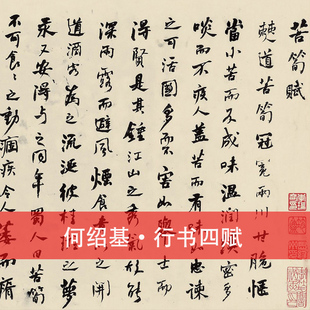 苦筍賦
僰道苦筍冠冕兩川甘脆愜
當小苦而不成味溫潤縝密多
啖而不疾人蓋苦而有味如忠諫
之可活國多而不害如舉士而
得賢是其鍾江山之秀氣故能
深雨露而避風煙食肴以之開
道酒客為之流涎彼桂斑之夢
汞又安得與之同年蜀人曰苦筍
不可食食之動痼疾令人萎而瘠
何绍基·行书四赋